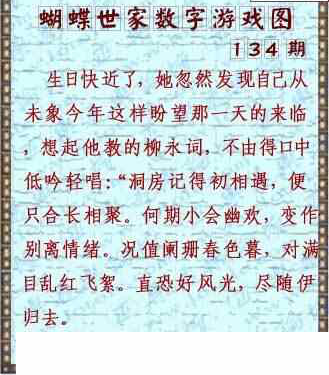 蝴蝶世家数字游戏图
134期
生日快近了，她忽然发现自己从
未象今年这样盼望那一天的来临
，想起他教的柳永词，不由得口中
低吟轻唱：“洞房记得初相遇，便
只合长相聚。何期小会幽欢，变作
别离情绪。况值阑珊春色暮，对满
目乱红飞絮。直恐好风光，尽随伊
归去。